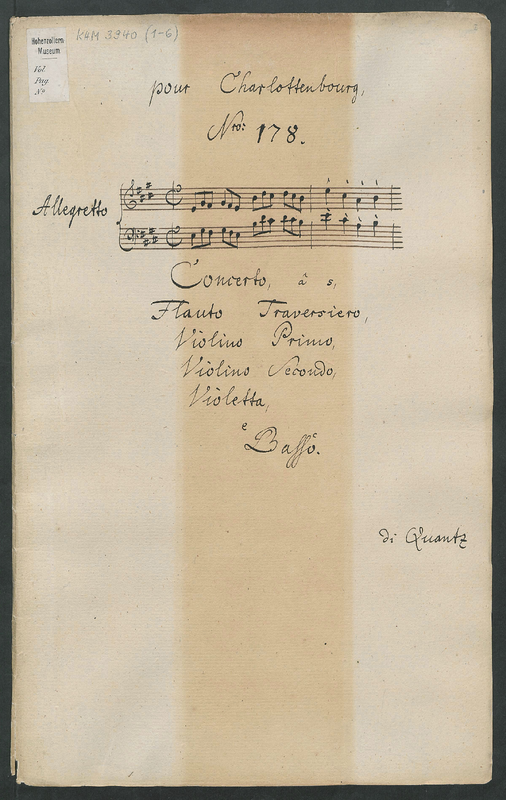 Hohenzollern
Museum
Vol.
Pag.
Nº
KHM 3940 (1-6)
pour Charlottenbourg,
Nro: 178.
Allegretto
Concerto, â 5,
Flauto Traversiero,
Violino Primo,
Violino Secondo,
Violetta,
e
Basso.
di Quantz